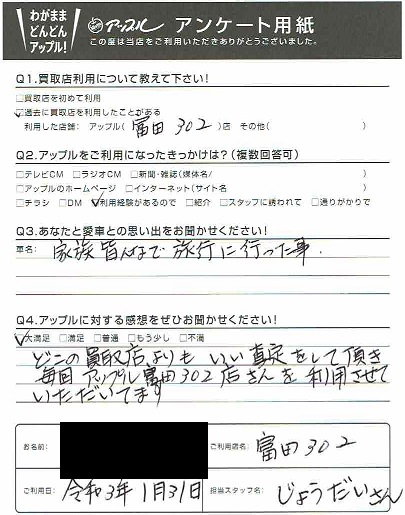 わがまま
どんどん
アップル！
アップル アンケート用紙
この度は当店をご利用いただきありがとうございました。
Q1.買取店利用について教えて下さい！
□買取店を初めて利用
☑過去に買取店を利用したことがある
利用した店舗： アップル（ 富田302 ）店 その他（ ）
Q2.アップルをご利用になったきっかけは？（複数回答可）
□テレビCM □ラジオCM □新聞・雑誌（媒体名/ ）
□アップルのホームページ □インターネット（サイト名 ）
□チラシ □DM ☑利用経験があるので □紹介 □スタッフに誘われて □通りがかりで
Q3.あなたと愛車との思い出をお聞かせください！
車名：
家族皆んなで旅行に行った事.
Q4.アップルに対する感想をぜひお聞かせください！
☑大満足 □満足 □普通 □もう少し □不満
どこの買取店よりも いい査定をして頂き
毎回 アップル富田302店さんを利用させて
いただいてます
お名前：
ご利用店名： 富田302
ご利用日： 令和3年1月31日
担当スタッフ名： じょうだいさん